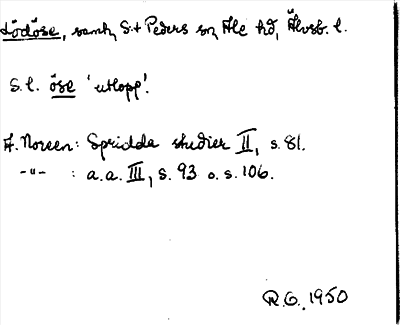 Lödöse, samh, S:t Peders sn, Ale hd, Älvsb. l.
S. l. öse 'utlopp'.
A. Noreen: Spridda studier II, s. 81.
-"- : a.a. III, s. 93 o. s. 106.
R.G. 1950